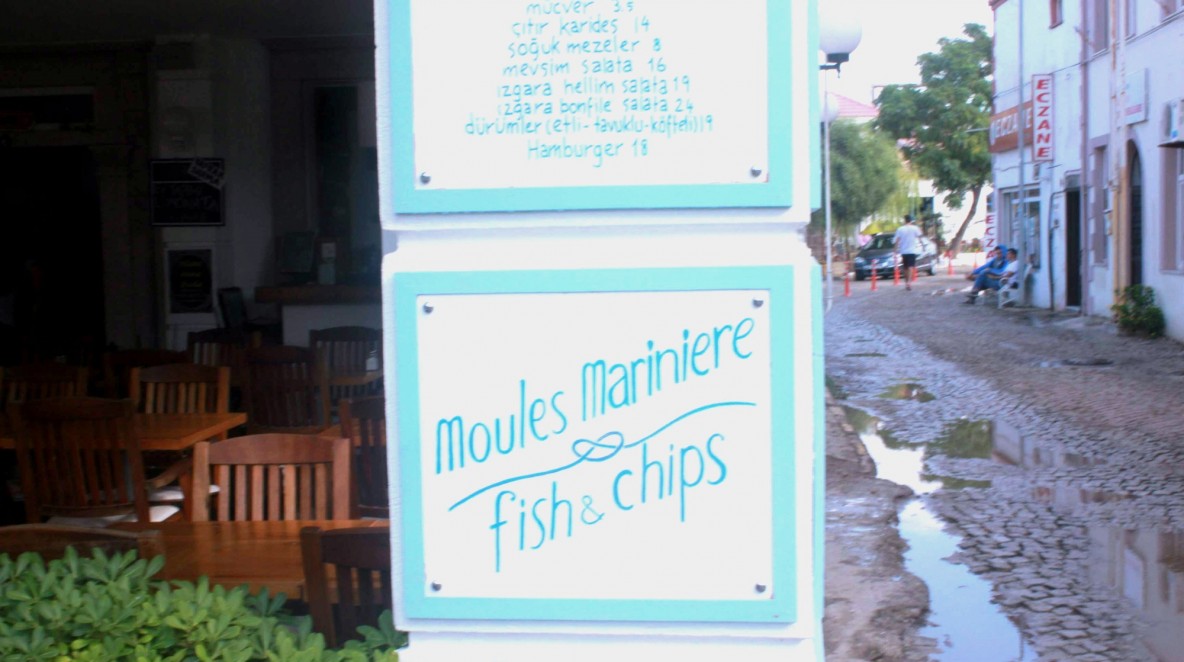 mücver 3.5
çıtır karides 14
soğuk mezeler 8
mevsim salata 16
ızgara hellim salata 19
ızgara bonfile salata 24
dürümler (etli-tavuklu-köfteli) 19
Hamburger 18
Moules Mariniere
fish & chips
ECZANE